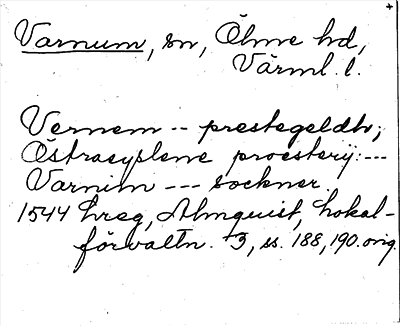 +
Varnum, sn, Ölme hd,
Värml. l.
Vernem -- prestegeldh;
Östrasyslene proesterij: ---
Varnim --- sockner.
1544 hreg, Almquist, Lokal-
förvaltn. 3, ss. 188, 190. orig.